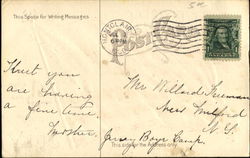 This Space for Writing Messages
MONTCLAIR
Post
Trust you
are having
a fine time.
Mother.
Mr Willard Freeman
New Milford
N. J.
Jersey Boys Camp.
This side for the Address only